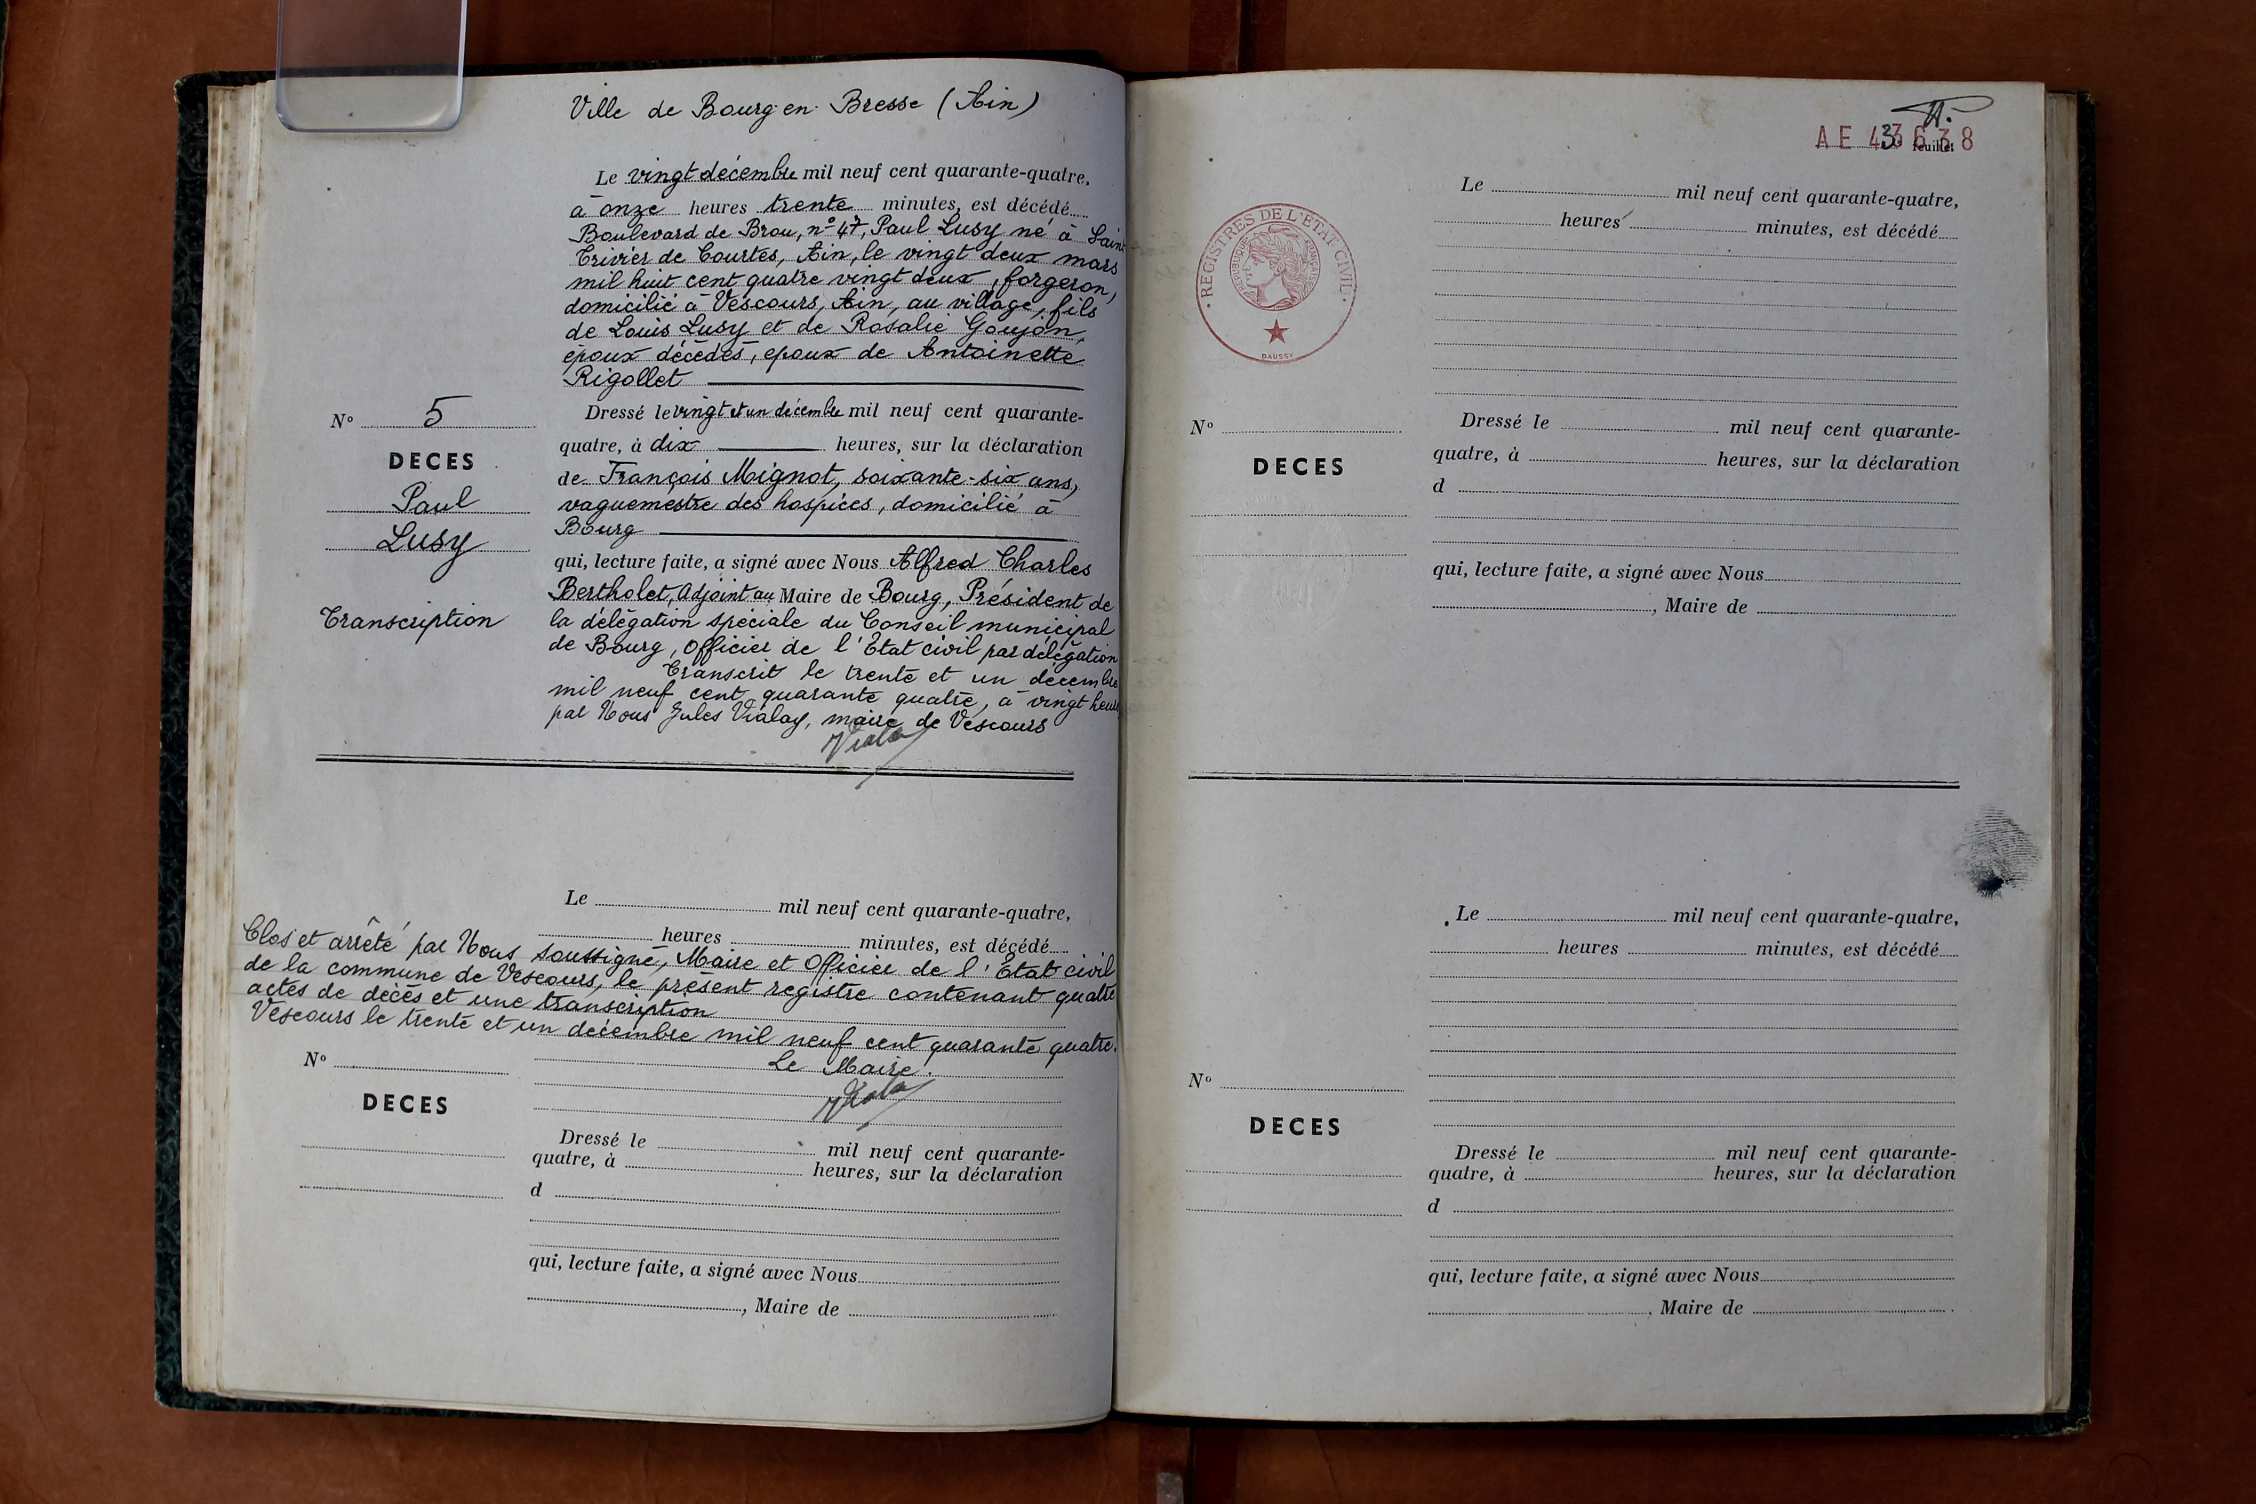 Ville de Bourg-en-Bresse (Ain)
Le vingt décembre mil neuf cent quarante-quatre,
à onze heures trente minutes, est décédé
Boulevard de Brou, n° 47, Paul Lusy né à Saint
Trivier de Courtes, Ain, le vingt deux mars
mil huit cent quatre vingt deux, forgeron,
domicilié à Vescours, Ain, au village, fils
de Louis Lusy et de Rosalie Goujon,
époux décédés, époux de Antoinette
Rigollet
N° 5
DECES
Paul
Lusy
Transcription
Dressé le vingt et un décembre mil neuf cent quarante-
quatre, à dix heures, sur la déclaration
de François Mignot, soixante-six ans,
vaguemestre des hospices, domicilié à
Bourg
qui, lecture faite, a signé avec Nous Alfred Charles
Bertholet, Adjoint au Maire de Bourg, Président de
la délégation spéciale du Conseil municipal
de Bourg, Officier de l'Etat civil par délégation
Transcrit le trente et un décembre
mil neuf cent quarante quatre, à vingt heures
par Nous Jules Vialay, maire de Vescours
Le mil neuf cent quarante-quatre,
heures minutes, est décédé
Clos et arrêté par Nous soussigné, Maire et Officier de l'Etat civil
de la commune de Vescours, le présent registre contenant quatre
actes de décès et une transcription
Vescours le trente et un décembre mil neuf cent quarante quatre.
Le Maire.
N°
DECES
Dressé le mil neuf cent quarante-
quatre, à heures, sur la déclaration
d
qui, lecture faite, a signé avec Nous
, Maire de
AE 43638
3 feuillet
REGISTRES DE L'ETAT CIVIL
REPUBLIQUE FRANÇAISE
DAUSSY
Le mil neuf cent quarante-quatre,
heures minutes, est décédé
N°
DECES
Dressé le mil neuf cent quarante-
quatre, à heures, sur la déclaration
d
qui, lecture faite, a signé avec Nous
, Maire de
Le mil neuf cent quarante-quatre,
heures minutes, est décédé
N°
DECES
Dressé le mil neuf cent quarante-
quatre, à heures, sur la déclaration
d
qui, lecture faite, a signé avec Nous
, Maire de